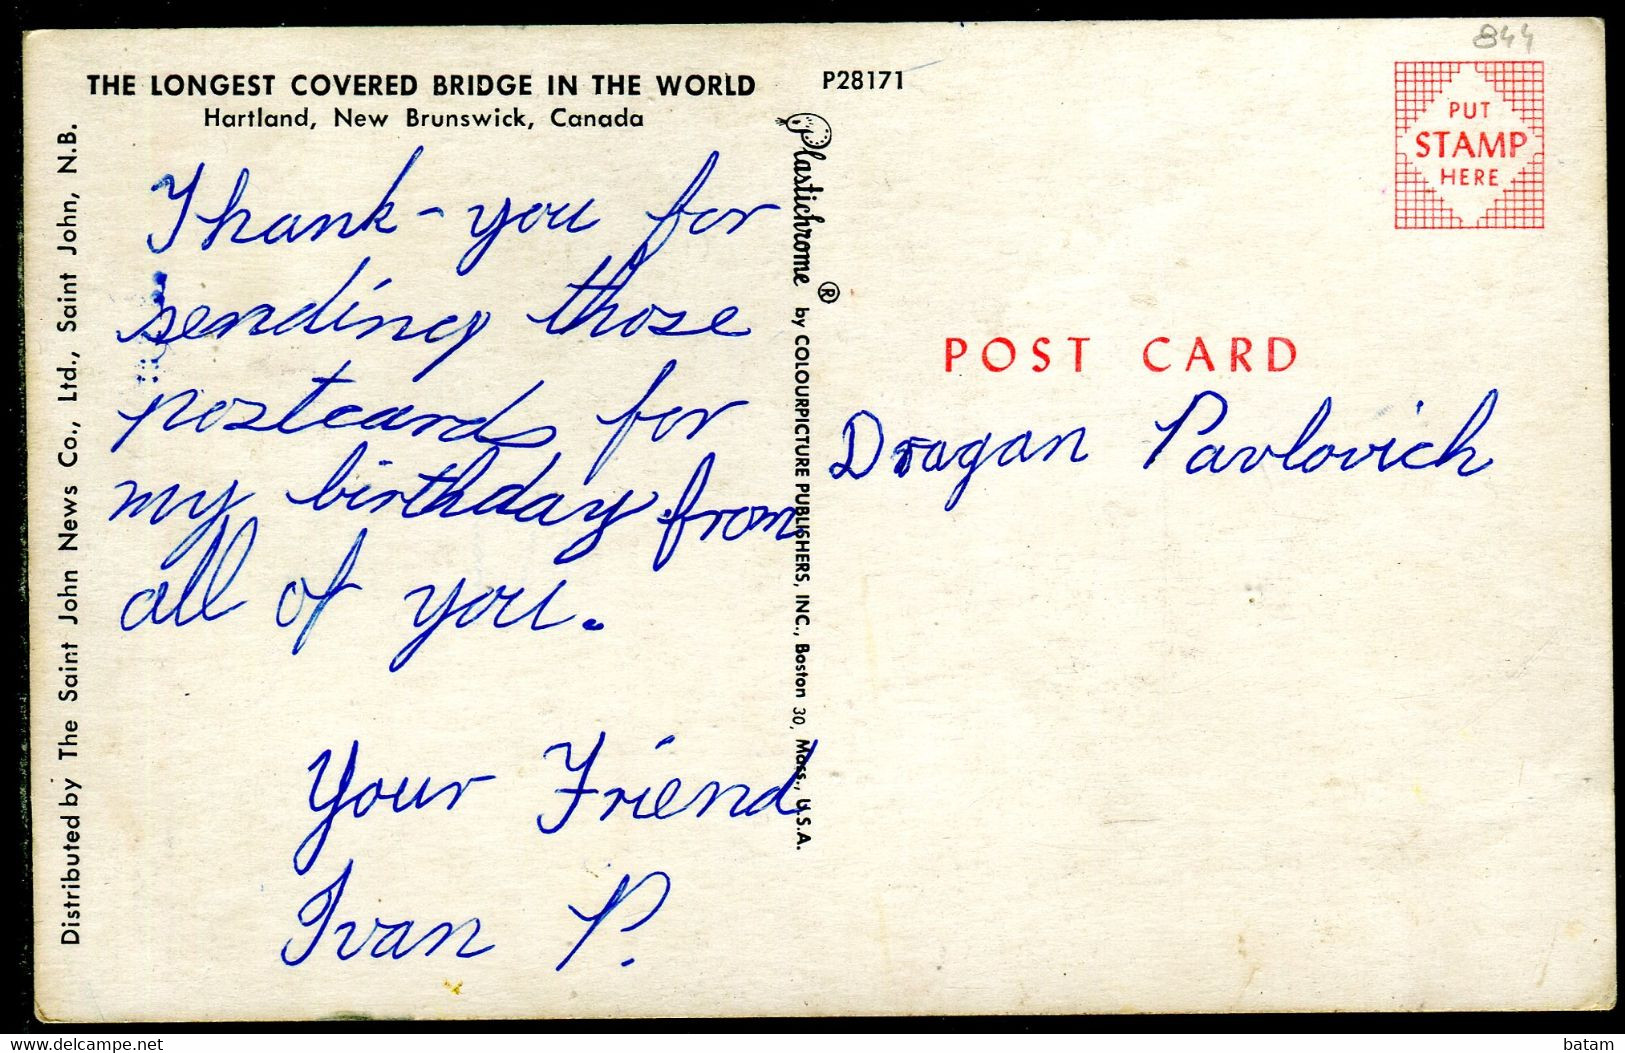 THE LONGEST COVERED BRIDGE IN THE WORLD
Hartland, New Brunswick, Canada
P28171
844
PUT
STAMP
HERE
Distributed by The Saint John News Co., Ltd., Saint John, N.B.
Plastichrome ® by COLOURPICTURE PUBLISHERS, INC., Boston 30, Mass., U.S.A.
Thank-you for
sending those
postcards for
my birthday from
all of you.
Your Friend
Ivan P.
POST CARD
Dragan Pavlovich
delcampe.net
batam